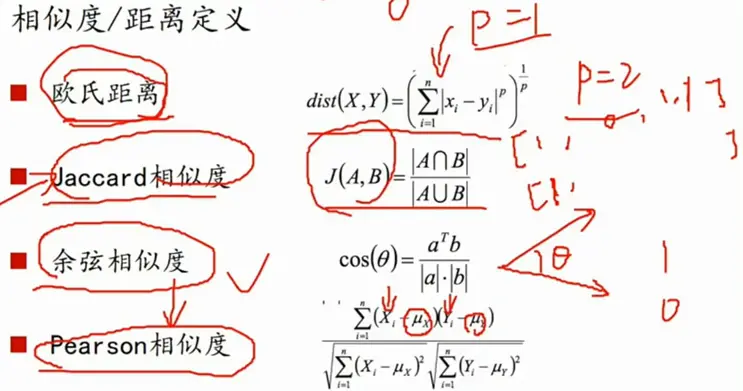 相似度/距离定义
p=1
■ 欧氏距离
dist(X,Y)=(∑_{i=1}^{n}|x_i-y_i|^p)^{1/p}
p=2
■ Jaccard相似度
J(A,B)=|A∩B|/|A∪B|
■ 余弦相似度
cos(θ)=a^T b/|a|·|b|
θ
1
0
■ Pearson相似度
∑_{i=1}^{n}(X_i-μ_X)(Y_i-μ_Y)/√∑_{i=1}^{n}(X_i-μ_X)^2 √∑_{i=1}^{n}(Y_i-μ_Y)^2